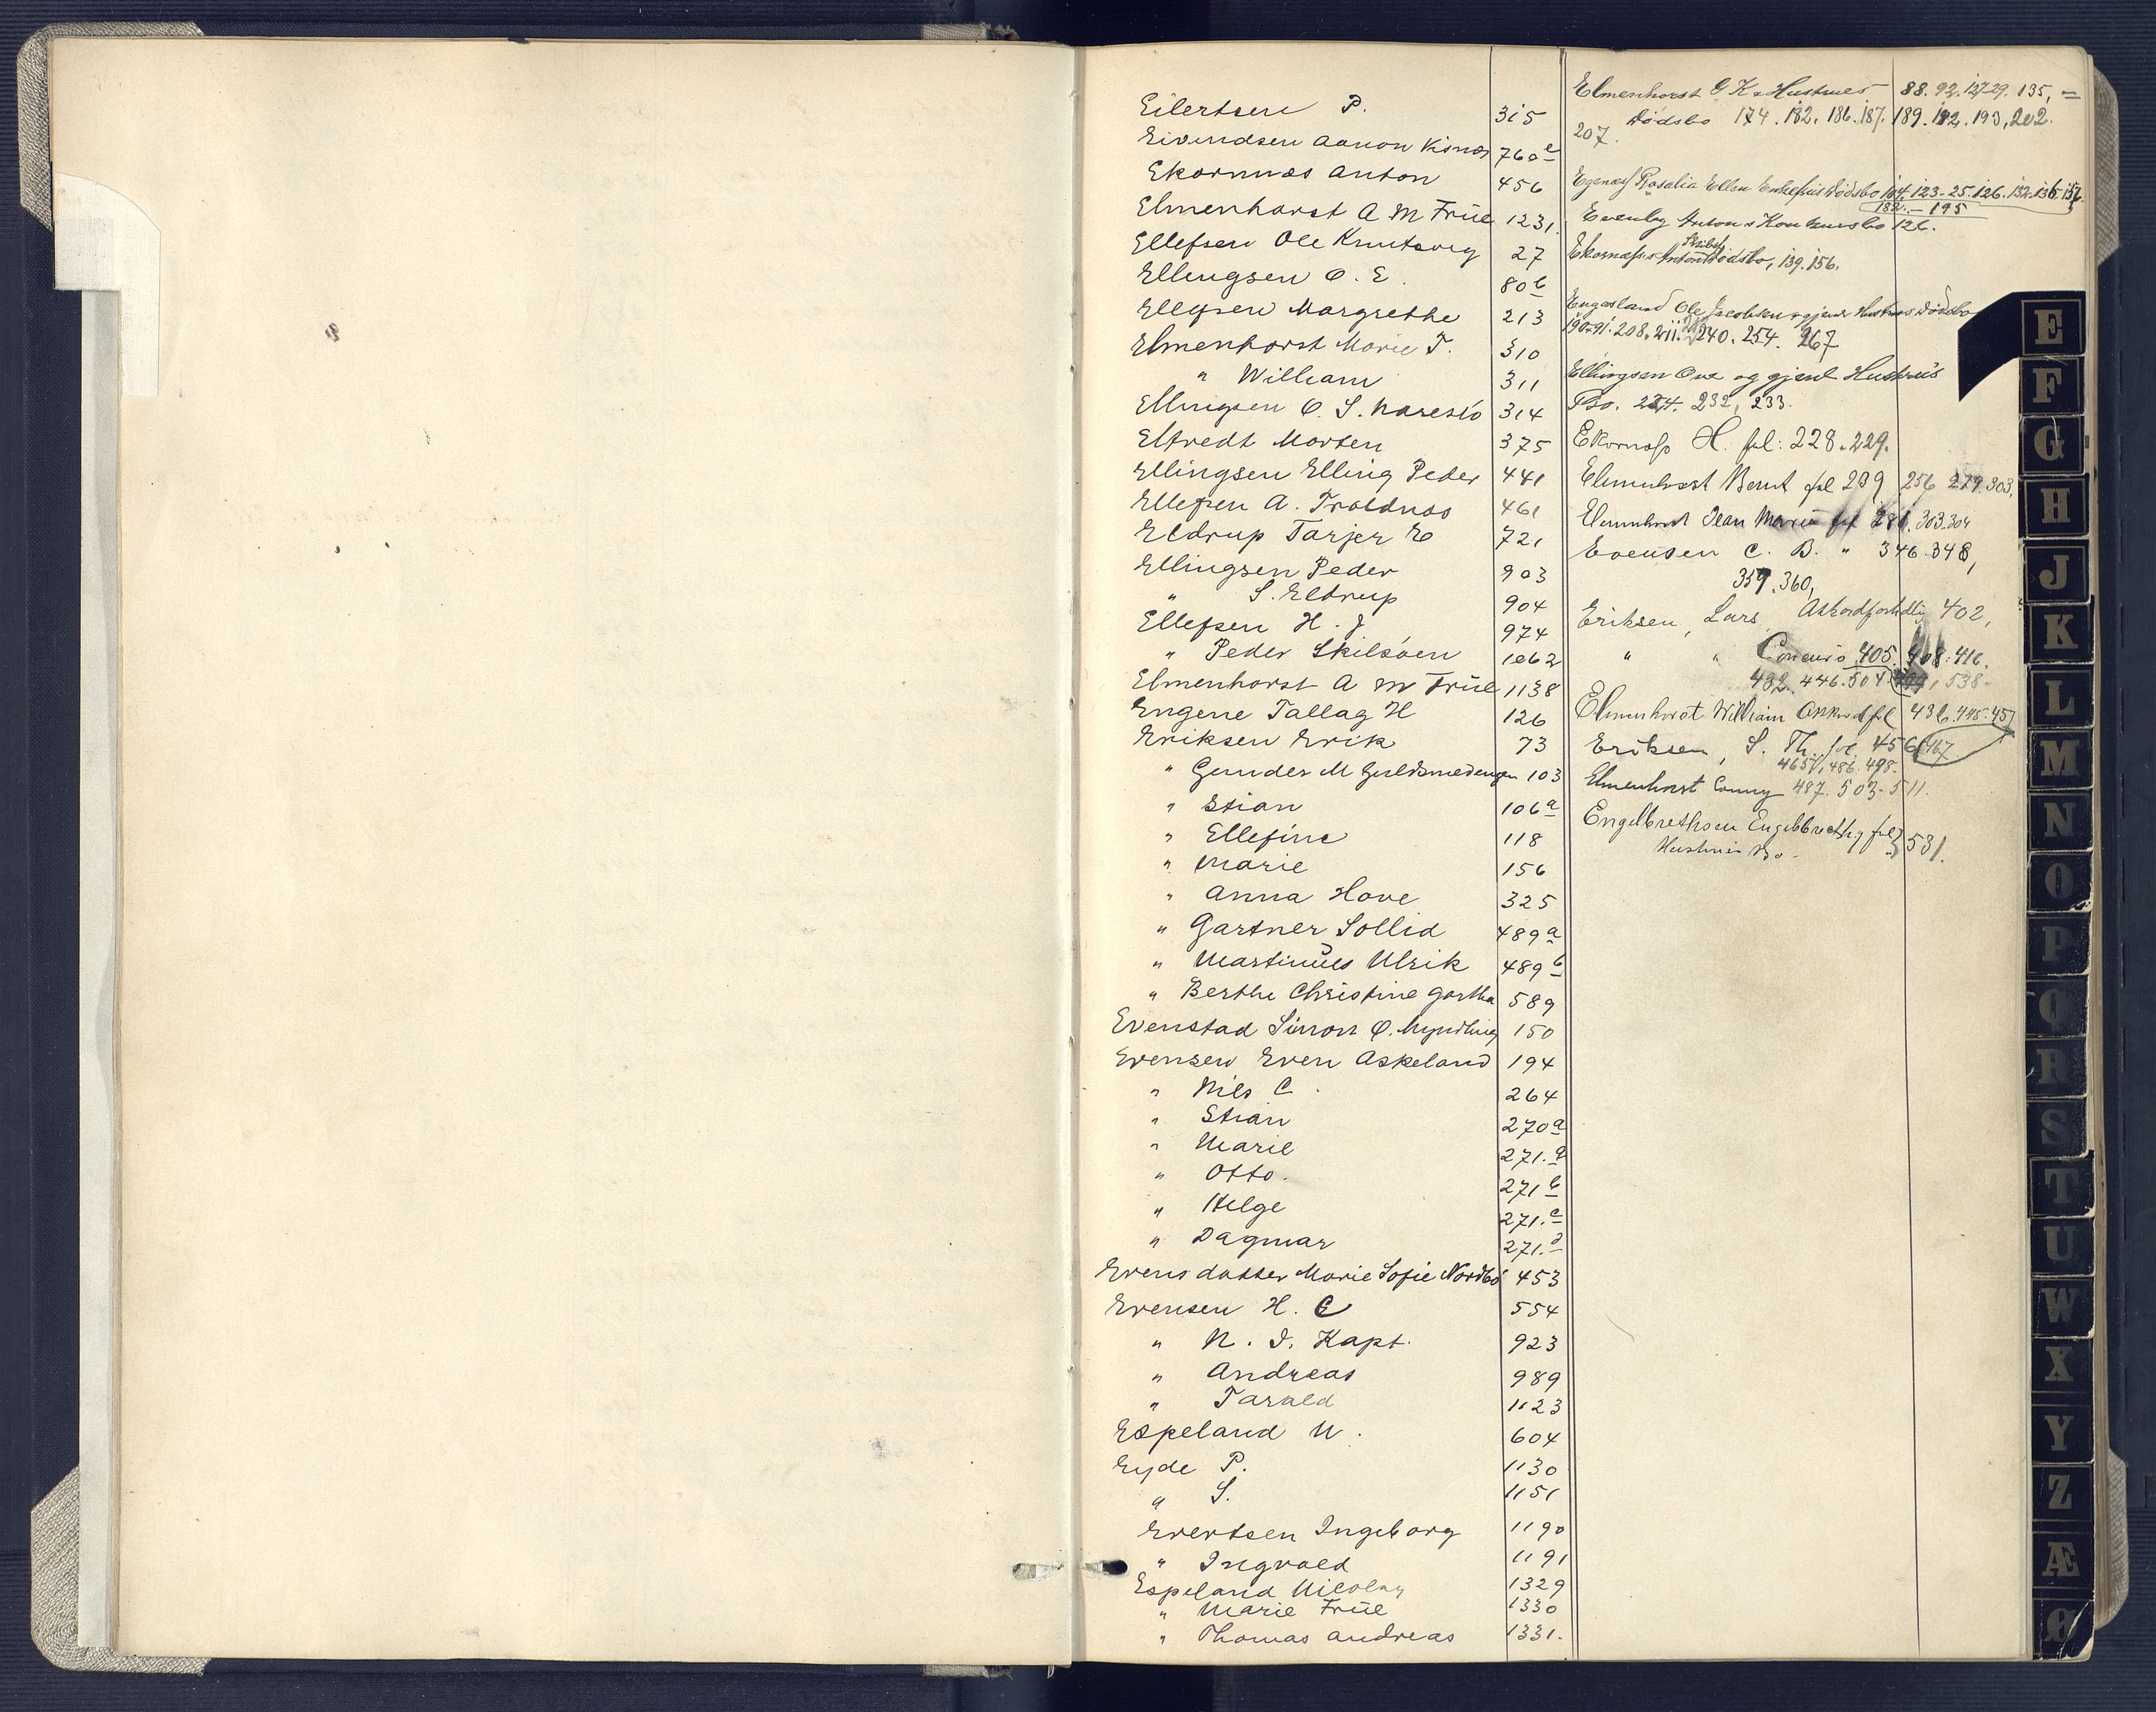 Eilertsen P. 315
Eivindsen Aanon Kisnæs 760 e
Ekornnæs Anton 456
Elmenhorst A M Frue 1231.
Ellefsen Ole Knutsveg 27
Ellingsen O. E. 80 b
Ellefsen Margrethe 213
Elmenhorst Marie T. 310
" William 311
Ellingsen O. S. Naresto 314
Eltvedt Morten 375
Ellingsen Elling Peder 441
Ellefsen A. Troldnæs 461
Eldrup Tarjer E 721
Ellingsen Peder 903
" S. Eltrup 904
Ellefsen H. J 974
" Peder Skilsöen 1062
Elmenhorst A M Frue 1138
Engene Tallag H 126
Eriksen Erik 73
" Gunder M Guldsmedengen 103
" Stian 106 a
" Ellefine 118
" Marie 156
" Anna Hove 325
" Gartner Sollid 489 a
" Martinius Ulrik 489 b
" Berthe Christine Gartha 589
Evenstad Simon O. Myndling 150
Evensen Even Askeland 194
" Nils C. 264
" Stian 270 a
" Marie 271. a
" Otto. 271 b
" Helge 271. c
" Dagmar 271. d
Evensdatter Marie Sofie Nordbö 453
Evensen H. C 554
" N. J. Kapt. 923
" Andreas 989
" Tarald 1123
Espeland N. 604
Eyde P. 1130
" S. 1151
Evertsen Ingeborg 1190
" Ingvald 1191
Espeland Nicolay 1329
" Marie Frue 1330
" Thomas Andreas 1331.
Elmenhorst G K & Hustrues 88. 92. 127-29. 135, =
Dödsbo 174. 182. 186. 187. 189. 192. 193, 202.
207.
Egenæs Rosalia Ellen Enkefrues Dödsbo 104. 123-25. 126. 132. 136. 156.
182. – 195
Evenby Antons Konkursbo 126.
Ekornæs's Anton Skibsf Dödsbo, 139. 156.
Engesland Ole Jacobsen & gjenl Hustrues Dödsbo
190-91. 208. 211. 240. 254. 267
Ellingsen Ove og gjenl Hustrues
Bo. 224. 232, 233.
Ekornæss H. fol: 228. 229.
Elmenhorst Bernt fol 239 256 279. 303,
Elmenhorst Jean Marie fol 281. 303-304
Evensen C. B. " 346. 348,
359. 360,
Eriksen, Lars, Akkordforhdlg 402,
" " Concurs 405. 408. 416.
432. 446. 504. 538.
Elmenhorst William Akkord fol 436. 445. 457
Eriksen, S. Th. fol. 456 467
465, 486. 498.
Elmenhorst Conny 487. 503-511.
Engelbrethsen Engelbrecht og fol
Hustrues Bo – 531.
E
F
G
H
J
K
L
M
N
O
P
Q
R
S
T
U
W
X
Y
Z
Æ
Ø